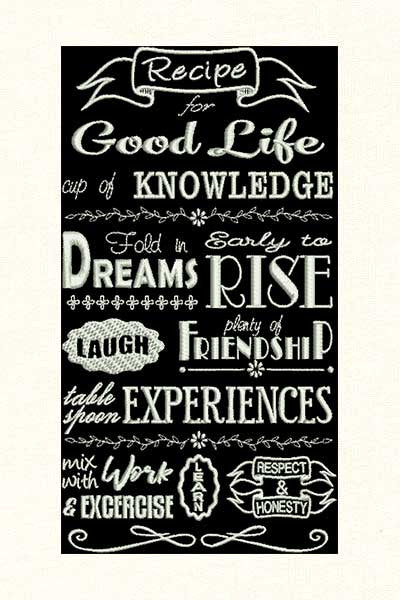 Recipe
for
Good Life
cup of KNOWLEDGE
Fold in
DREAMS
Early to
RISE
LAUGH
plenty of
FRIENDSHIP
table
spoon
EXPERIENCES
mix
with Work
& EXCERCISE
LEARN
RESPECT
&
HONESTY